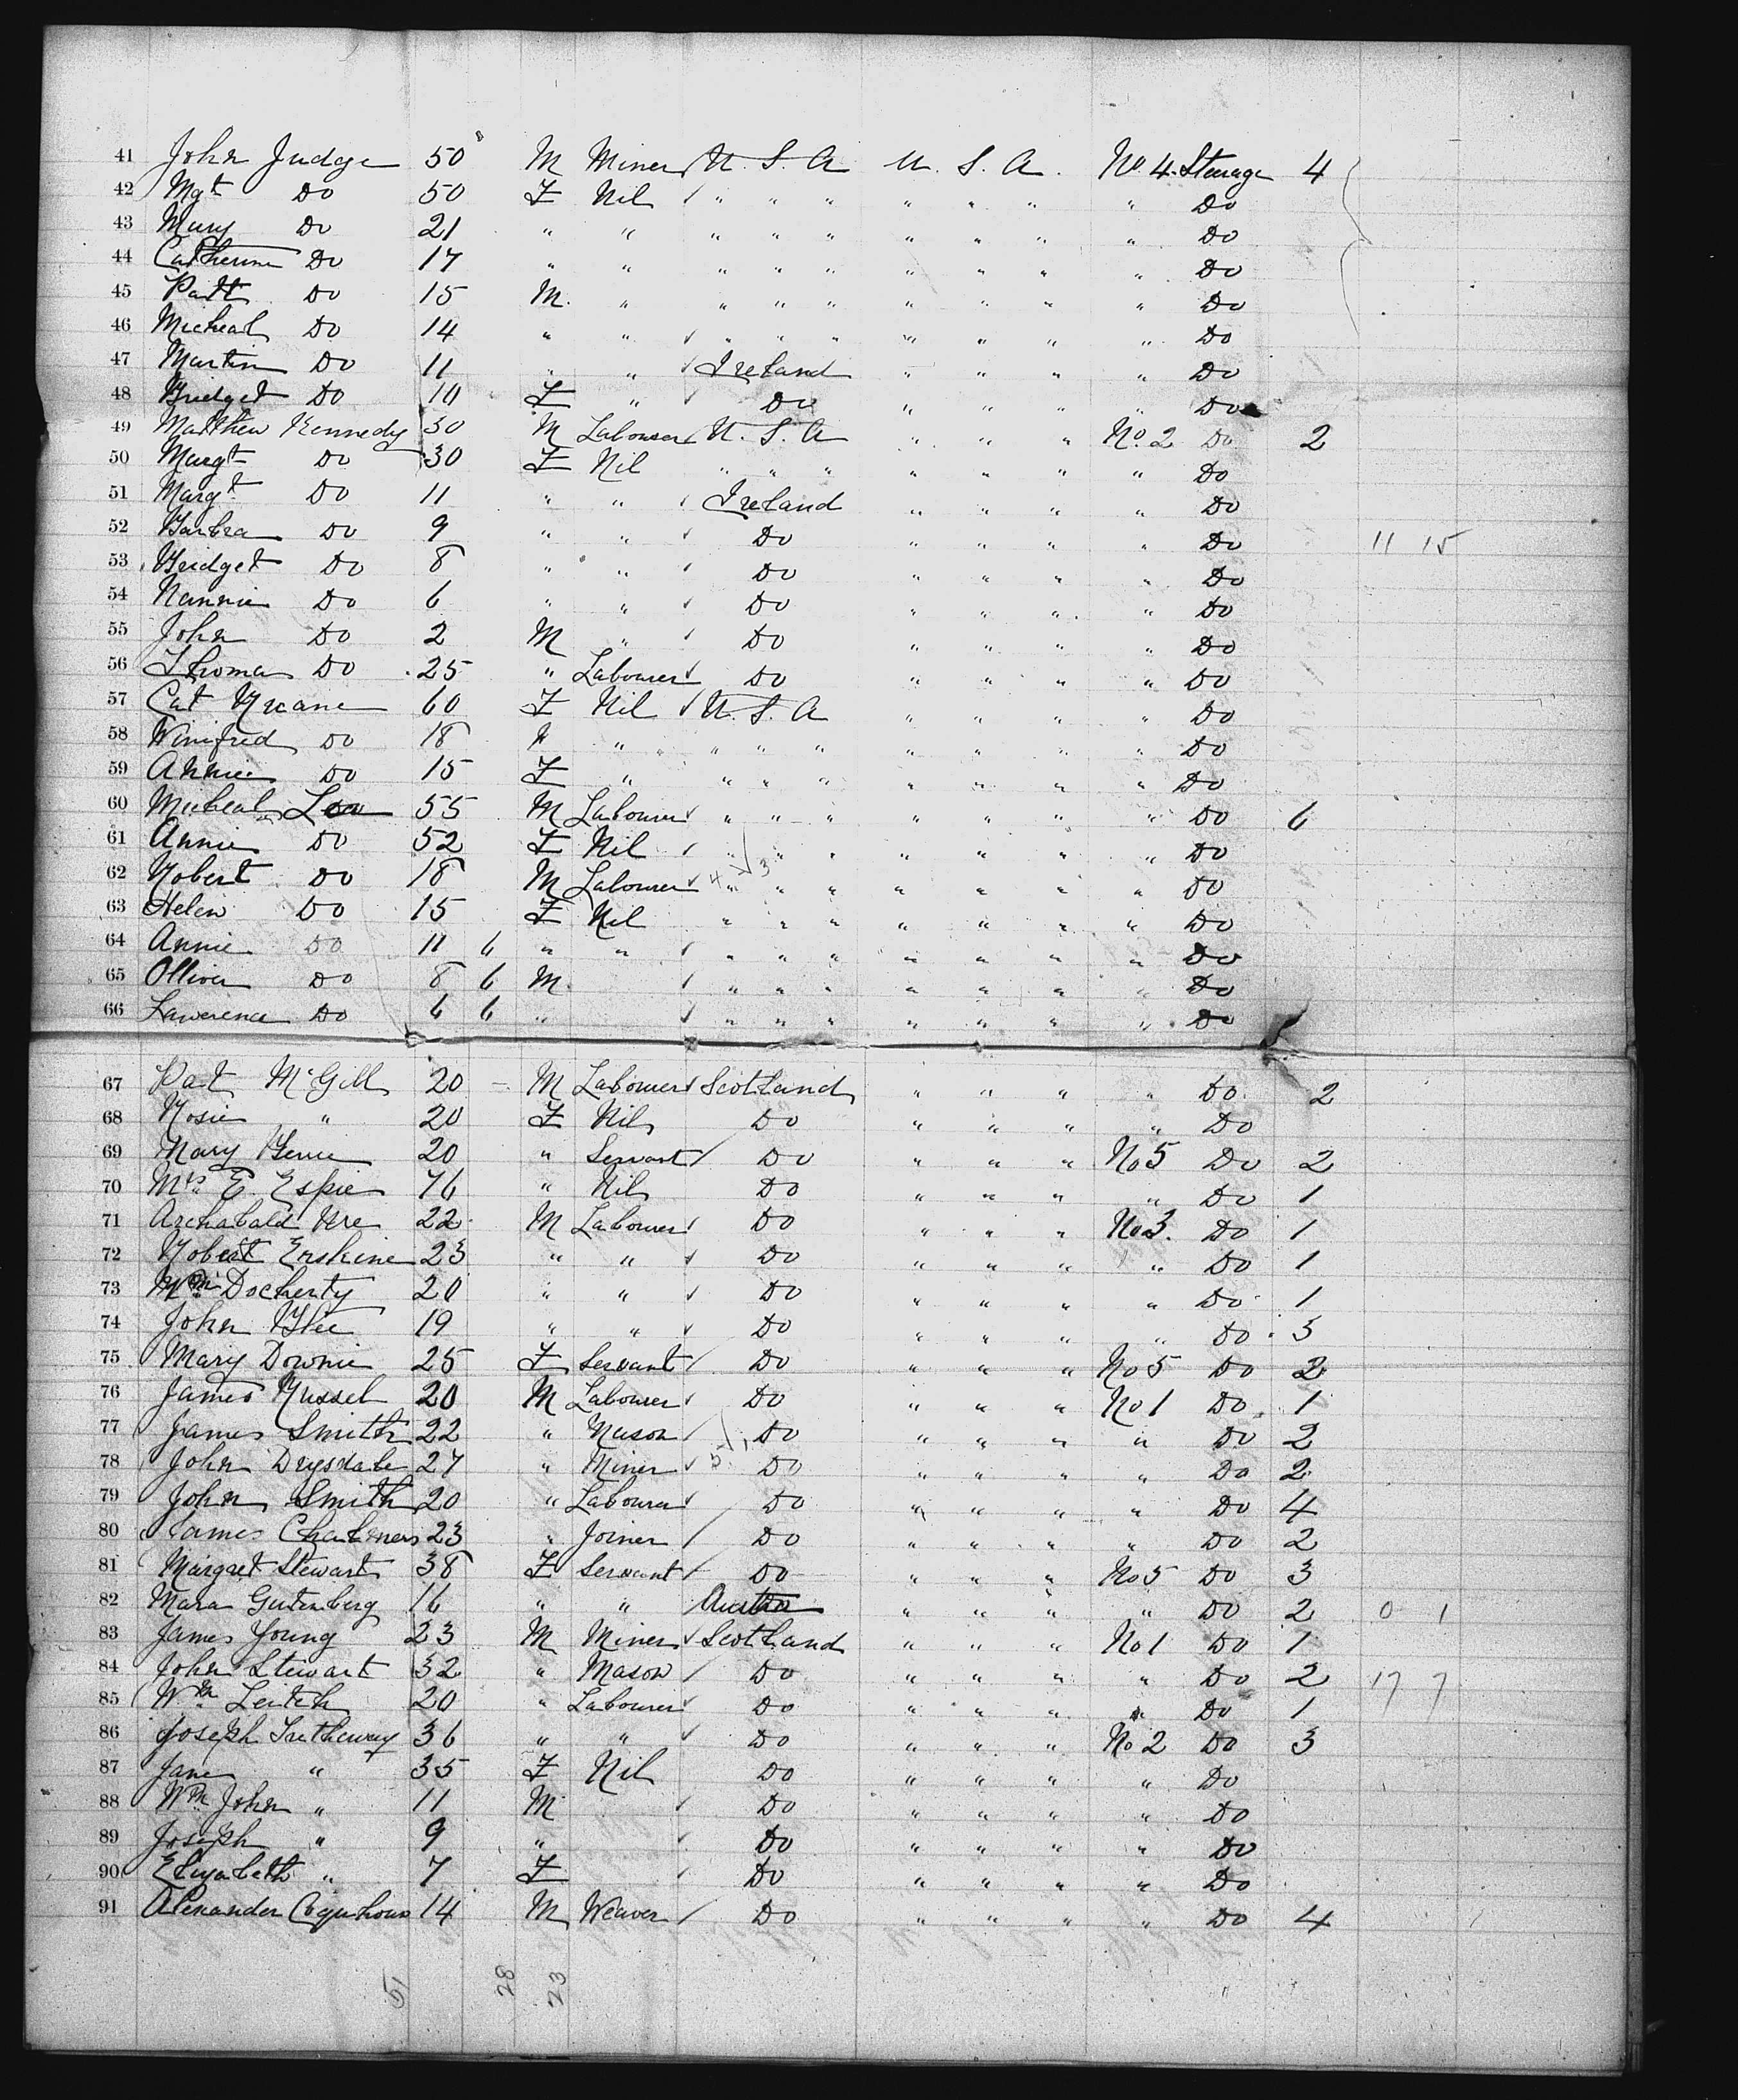 41 John Judge 50 M Miner U. S. A U. S. A. No 4. Steerage 4
42 Mgt Do 50 F Nil " " " " " " " Do
43 Mary Do 21 " " " " " " " " " Do
44 Catherine Do 17 " " " " " " " " " Do
45 Patk Do 15 M. " " " " " " " " Do
46 Micheal Do 14 " " " " " " " " " Do
47 Martin Do 11 " " Ireland " " " " Do
48 Bridget Do 10 F " Do " " " " Do
49 Matthew Kennedy 30 M Labourer U. S. A " " " No. 2 Do 2
50 Margt Do 30 F Nil " " " " " " " Do
51 Margt Do 11 " " Ireland " " " " Do
52 Barbra Do 9 " " Do " " " " Do 11 15
53 Bridget Do 8 " " Do " " " " Do
54 Nannie Do 6 " " Do " " " " Do
55 John Do 2 M " Do " " " " Do
56 Thomas Do 25 " Labourer Do " " " " Do
57 Cat 60 F Nil U. S. A " " " " Do
58 Winifred Do 18 " " " " " " " " Do
59 Annie Do 15 F " " " " " " " " Do
60 Micheal 55 M Labourer " " " " " " " Do 6
61 Annie Do 52 F Nil " " " " " " " Do
62 Robert Do 18 M Labourer " " " " " " " Do
63 Helen Do 15 F Nil " " " " " " " Do
64 Annie Do 11 6 " " " " " " " " " Do
65 Olliver Do 8 6 M. " " " " " " " Do
66 Lawerence Do 6 6 " " " " " " " " Do
67 Pat McGill 20 M Labourer Scotland " " " " Do 2
68 Rosie " 20 F Nil Do " " " " Do
69 Mary 20 " Servant Do " " " No 5 Do 2
70 Mrs E. Espie 76 " Nil Do " " " " Do 1
71 Archabald Ure 22 M Labourer Do " " " No 3. Do 1
72 Robert Erskine 23 " " Do " " " " Do 1
73 Wm Docherty 20 " " Do " " " " Do 1
74 John 19 " " Do " " " " Do 3
75 Mary Downie 25 F Servant Do " " " No 5 Do 2
76 James Russel 20 M Labourer Do " " " No 1 Do 1
77 James Smith 22 " Mason Do " " " " Do 2
78 John Drysdale 27 " Miner Do " " " " Do 2
79 John Smith 20 " Labourer Do " " " " Do 4
80 James Chalmers 23 " Joiner Do " " " " Do 2
81 Margret Stewart 38 F Servant Do " " " No 5 Do 3
82 Mara Gutenberg 16 " " Austria " " " " Do 2 0 1
83 James Young 23 M Miner Scotland " " " No 1 Do 1
84 John Stewart 32 " Mason Do " " " " Do 2 17 7
85 Wm Leitch 20 " Labourer Do " " " " Do 1
86 Joseph Tretheway 36 " " Do " " " No 2 Do 3
87 Jane " 35 F Nil Do " " " " Do
88 Wm John " 11 M Do " " " " Do
89 Joseph " 9 " Do " " " " Do
90 Elizabeth " 7 F Do " " " " Do
91 Alexander Coquhoun 14 M Weaver Do " " " " Do 4
51 28 23